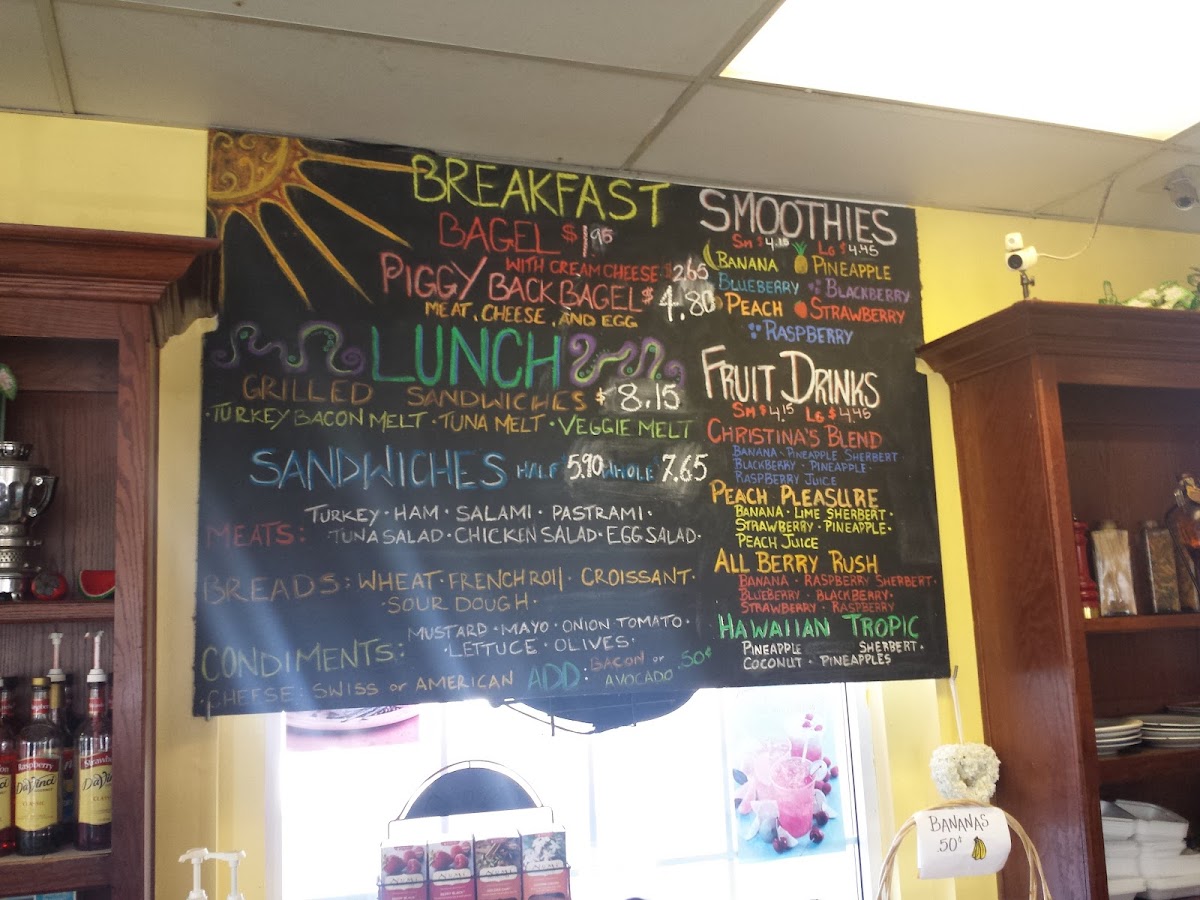 BREAKFAST
BAGEL $1.95
WITH CREAM CHEESE $2.65
PIGGY BACK BAGEL $4.80
MEAT, CHEESE, AND EGG
LUNCH
GRILLED SANDWICHES $8.15
·TURKEY BACON MELT ·TUNA MELT ·VEGGIE MELT
SANDWICHES HALF $5.90 WHOLE $7.65
MEATS: TURKEY · HAM · SALAMI · PASTRAMI ·
TUNA SALAD · CHICKEN SALAD · EGG SALAD·
BREADS: WHEAT · FRENCH ROLL · CROISSANT·
·SOUR DOUGH·
CONDIMENTS: MUSTARD ·MAYO ·ONION TOMATO·
·LETTUCE ·OLIVES·
·CHEESE: SWISS or AMERICAN ADD: BACON or AVOCADO .50¢
SMOOTHIES
Sm $4.15 LG $4.45
BANANA PINEAPPLE
BLUEBERRY BLACKBERRY
PEACH STRAWBERRY
RASPBERRY
FRUIT DRINKS
Sm $4.15 LG $4.45
CHRISTINA'S BLEND
BANANA · PINEAPPLE SHERBERT ·
BLACKBERRY · PINEAPPLE ·
RASPBERRY JUICE
PEACH PLEASURE
BANANA · LIME SHERBERT ·
STRAWBERRY · PINEAPPLE ·
PEACH JUICE
ALL BERRY RUSH
BANANA · RASPBERRY SHERBERT ·
BLUEBERRY · BLACKBERRY ·
STRAWBERRY · RASPBERRY
HAWAIIAN TROPIC
PINEAPPLE SHERBERT ·
COCONUT · PINEAPPLES
Raspberry
DaVinci
CLASSIC
DaVinci
BANANAS
.50¢